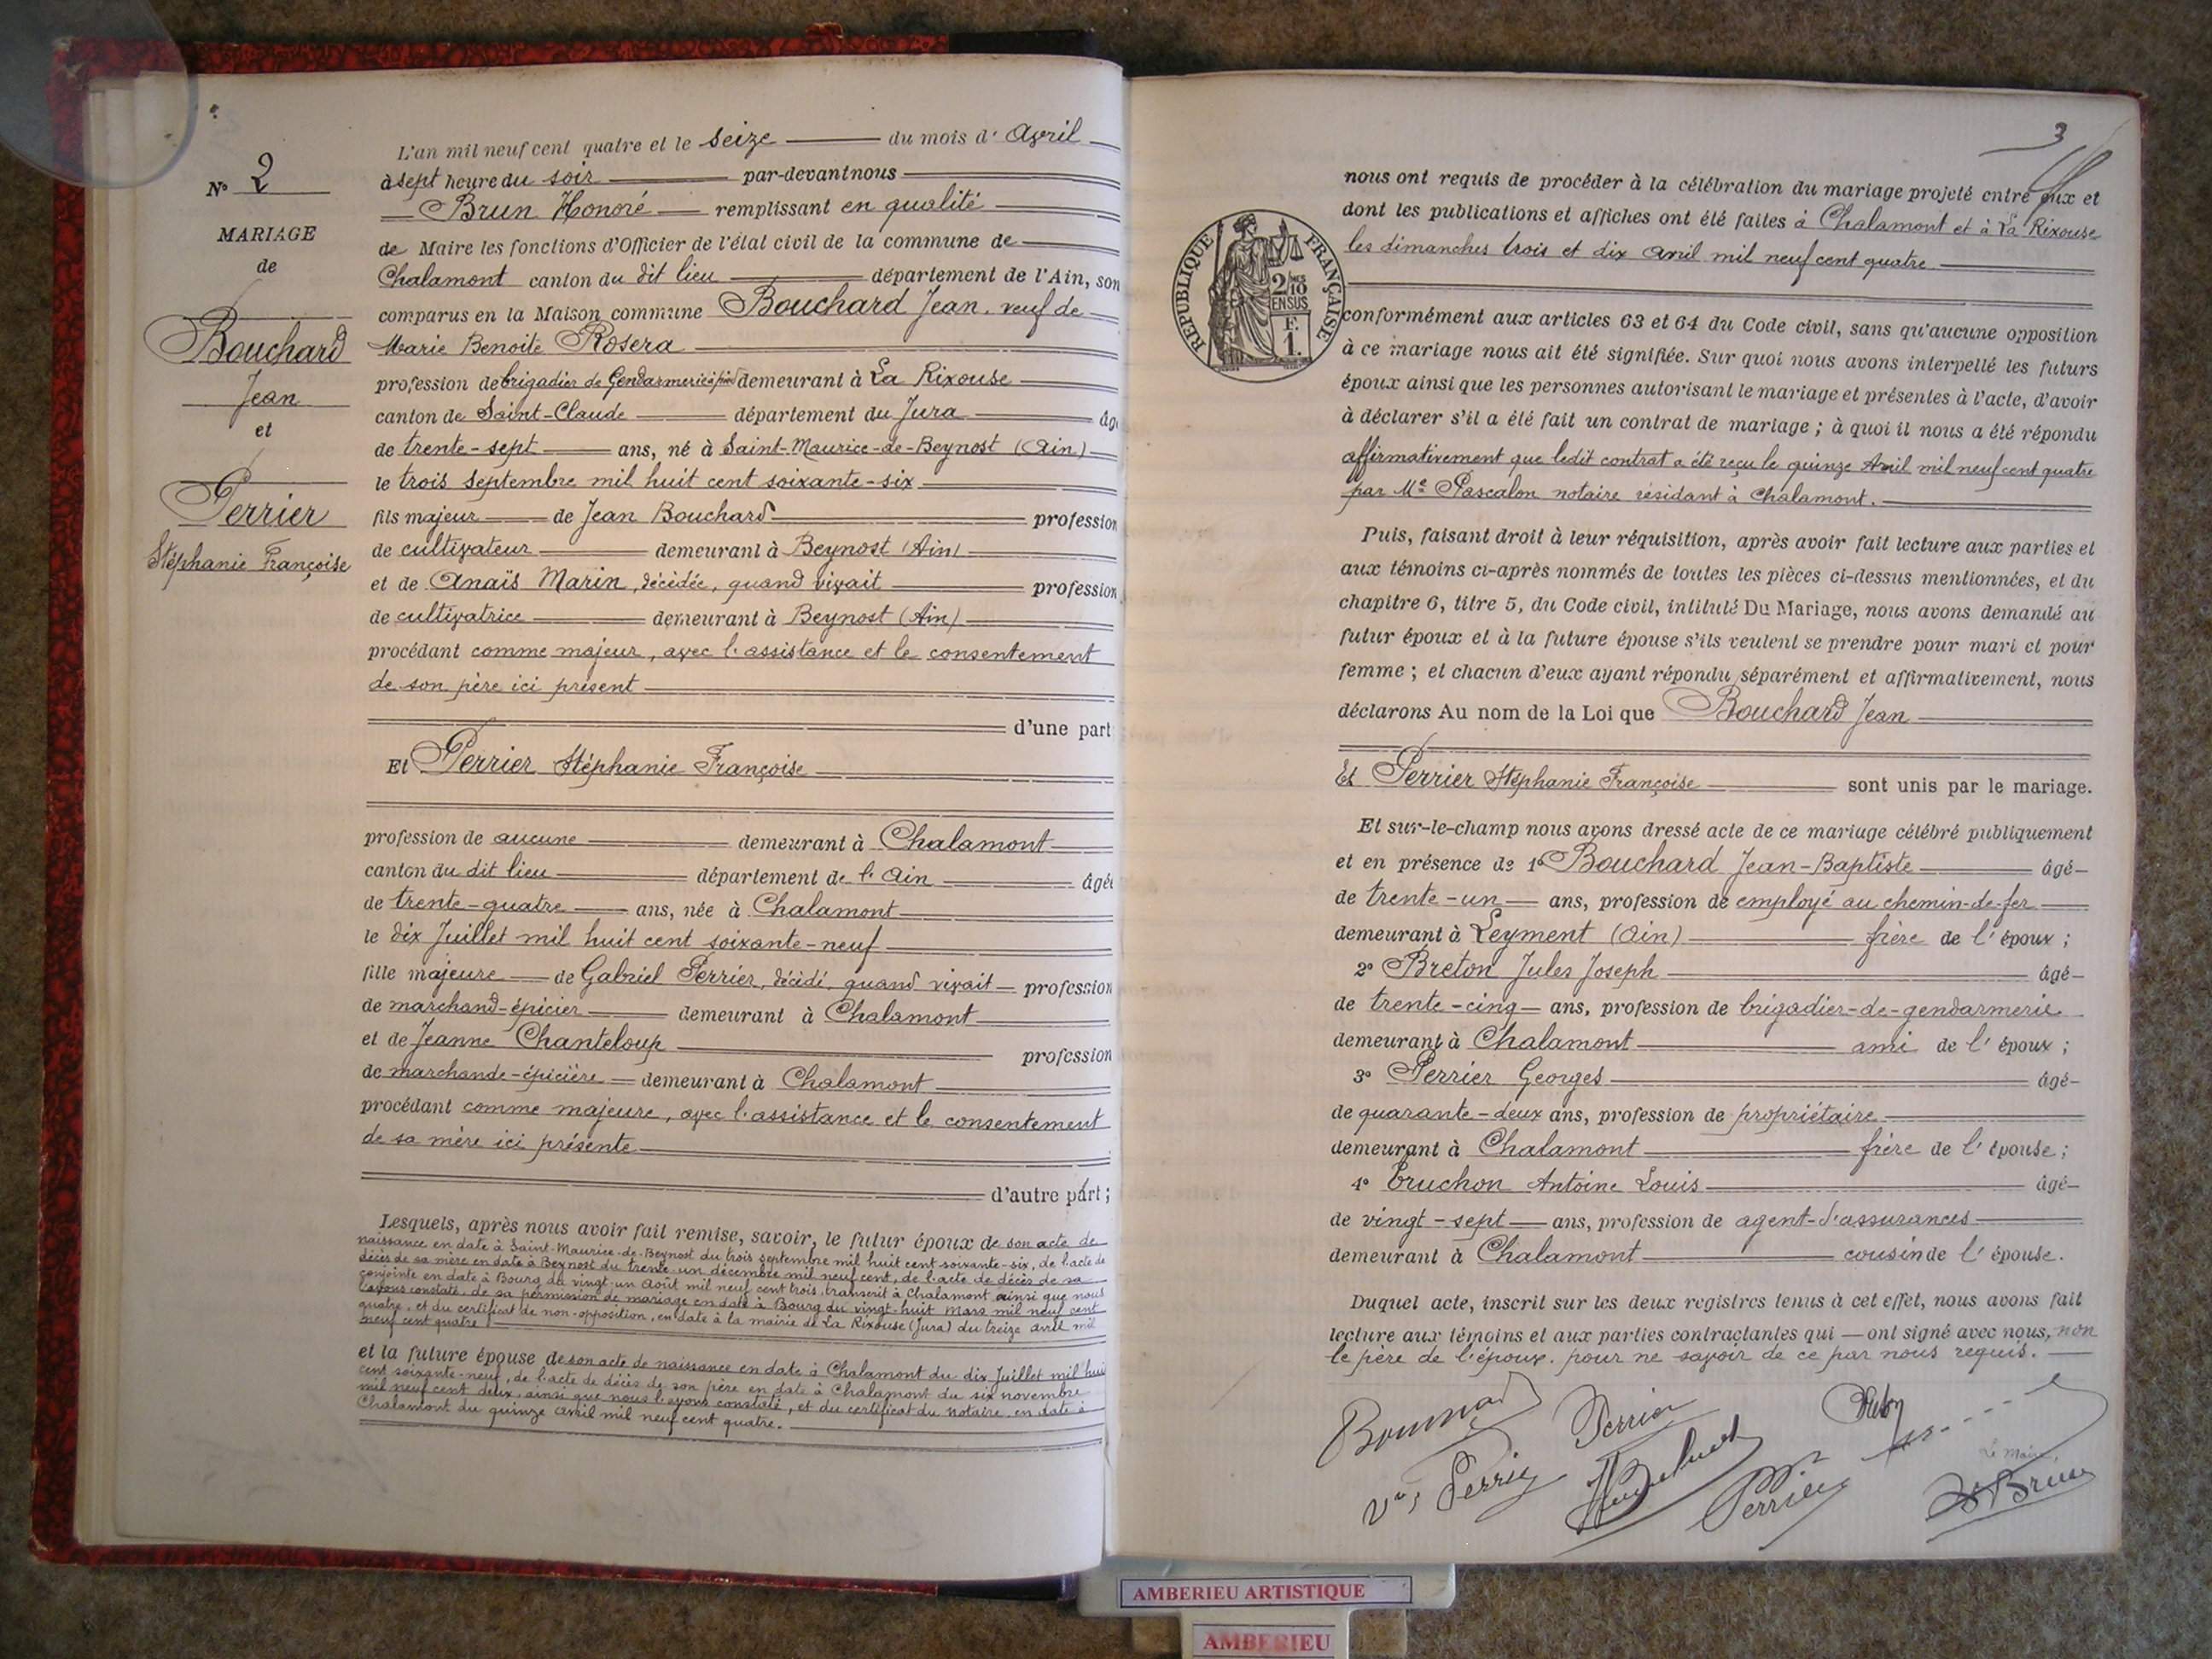 N° 2
MARIAGE
de
Bouchard
Jean
et
Perrier
Stéphanie Françoise
L'an mil neuf cent quatre et le seize du mois d' Avril
à sept heure du soir par-devant nous
Brun Honoré remplissant en qualité
de Maire les fonctions d'Officier de l'état civil de la commune de
Chalamont canton du dit lieu département de l'Ain, son
comparus en la Maison commune Bouchard Jean, veuf de
Marie Benoite Rosera
profession de brigadier de Gendarmerie à pied demeurant à La Rixouse
canton de Saint-Claude département du Jura âg
de trente-sept ans, né à Saint-Maurice-de-Beynost (Ain)
le trois septembre mil huit cent soixante-six
fils majeur de Jean Bouchard profession
de cultivateur demeurant à Beynost (Ain)
et de Anaïs Marin, décédée, quand vivait profession
de cultivatrice demeurant à Beynost (Ain)
procédant comme majeur, avec l'assistance et le consentement
de son père ici présent
d'une part
Et Perrier Stéphanie Françoise
profession de aucune demeurant à Chalamont
canton du dit lieu département de l'Ain âgée
de trente-quatre ans, née à Chalamont
le dix Juillet mil huit cent soixante-neuf
fille majeure de Gabriel Perrier, décédé, quand vivait profession
de marchand-épicier demeurant à Chalamont
et de Jeanne Chanteloup profession
de marchande-épicière demeurant à Chalamont
procédant comme majeure, avec l'assistance et le consentement
de sa mère ici présente
d'autre part;
Lesquels, après nous avoir fait remise, savoir, le futur époux de son acte de
naissance en date à Saint-Maurice-de-Beynost du trois septembre mil huit cent soixante-six, de l'acte de
décès de sa mère en date à Beynost du trente-un décembre mil neuf cent, de l'acte de décès de sa
conjointe en date à Bourg du vingt-un Août mil neuf cent trois, transcrit à Chalamont ainsi que nous
l'avons constaté, de sa permission de mariage en date à Bourg du vingt-huit mars mil neuf cent
quatre, et du certificat de non-opposition, en date à la mairie de La Rixouse (Jura) du treize avril mil
neuf cent quatre
et la future épouse de son acte de naissance en date à Chalamont du dix Juillet mil huit
cent soixante-neuf, de l'acte de décès de son père en date à Chalamont du six novembre
mil neuf cent deux, ainsi que nous l'avons constaté, et du certificat du Notaire en date à
Chalamont du quinze avril mil neuf cent quatre.
3
nous ont requis de procéder à la célébration du mariage projeté entre eux et
dont les publications et affiches ont été faites à Chalamont et à La Rixouse
les dimanches trois et dix avril mil neuf cent quatre
REPUBLIQUE FRANÇAISE
2/10 MES
EN SUS
F.
1.
conformément aux articles 63 et 64 du Code civil, sans qu'aucune opposition
à ce mariage nous ait été signifiée. Sur quoi nous avons interpellé les futurs
époux ainsi que les personnes autorisant le mariage et présentes à l'acte, d'avoir
à déclarer s'il a été fait un contrat de mariage; à quoi il nous a été répondu
affirmativement que ledit contrat a été reçu le quinze Avril mil neuf cent quatre
par Me Pascalon notaire résidant à Chalamont.
Puis, faisant droit à leur réquisition, après avoir fait lecture aux parties et
aux témoins ci-après nommés de toutes les pièces ci-dessus mentionnées, et du
chapitre 6, titre 5, du Code civil, intitulé Du Mariage, nous avons demandé au
futur époux et à la future épouse s'ils veulent se prendre pour mari et pour
femme; et chacun d'eux ayant répondu séparément et affirmativement, nous
déclarons Au nom de la Loi que Bouchard Jean
Et Perrier Stéphanie Françoise sont unis par le mariage.
Et sur-le-champ nous avons dressé acte de ce mariage célébré publiquement
et en présence de 1° Bouchard Jean-Baptiste âgé
de trente-un ans, profession de employé au chemin-de-fer
demeurant à Leyment (Ain) frère de l'époux;
2° Breton Jules Joseph âgé
de trente-cinq ans, profession de brigadier-de-gendarmerie
demeurant à Chalamont ami de l'époux;
3° Perrier Georges âgé
de quarante-deux ans, profession de propriétaire
demeurant à Chalamont frère de l'épouse;
4° Truchon Antoine Louis âgé
de vingt-sept ans, profession de agent-d'assurances
demeurant à Chalamont cousin de l'épouse.
Duquel acte, inscrit sur les deux registres tenus à cet effet, nous avons fait
lecture aux témoins et aux parties contractantes qui ont signé avec nous, non
le père de l'époux, pour ne savoir de ce par nous requis.
Perrier
Vve Perrier
Perrier
Le Maire
Brun
AMBERIEU ARTISTIQUE
AMBERIEU